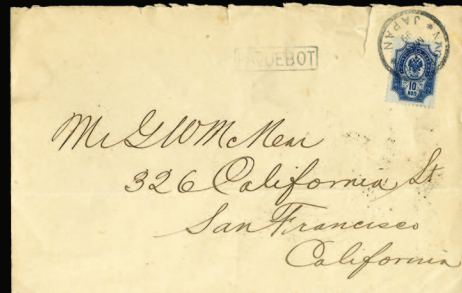 JAPAN
PAQUEBOT
10
Mr G W McNear
326 California St
San Francisco
California